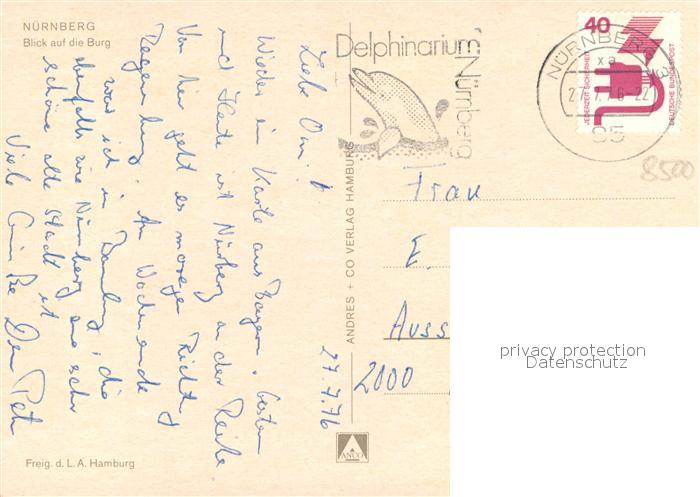 NÜRNBERG
Blick auf die Burg
Delphinarium
Nürnberg
NÜRNBERG
40
JEDERZEIT SICHERHEIT
DEUTSCHE BUNDESPOST
85
8500
27.7.76
Liebe Omi!
Wieder ein Karte aus Bayern. Gestern
und Heute ist Nürnberg an der Reihe
Von hier geht es morgen Richtung
Regensburg. Am Wochenende
war ich in Bamberg, die
ebenfalls wie Nürnberg eine sehr
schöne alte Stadt ist
Viele Grüße Dein Peter
ANDRES + CO VERLAG HAMBURG
Frau
E.
Auss
2000
privacy protection
Datenschutz
ANCO
Freig. d. L. A. Hamburg